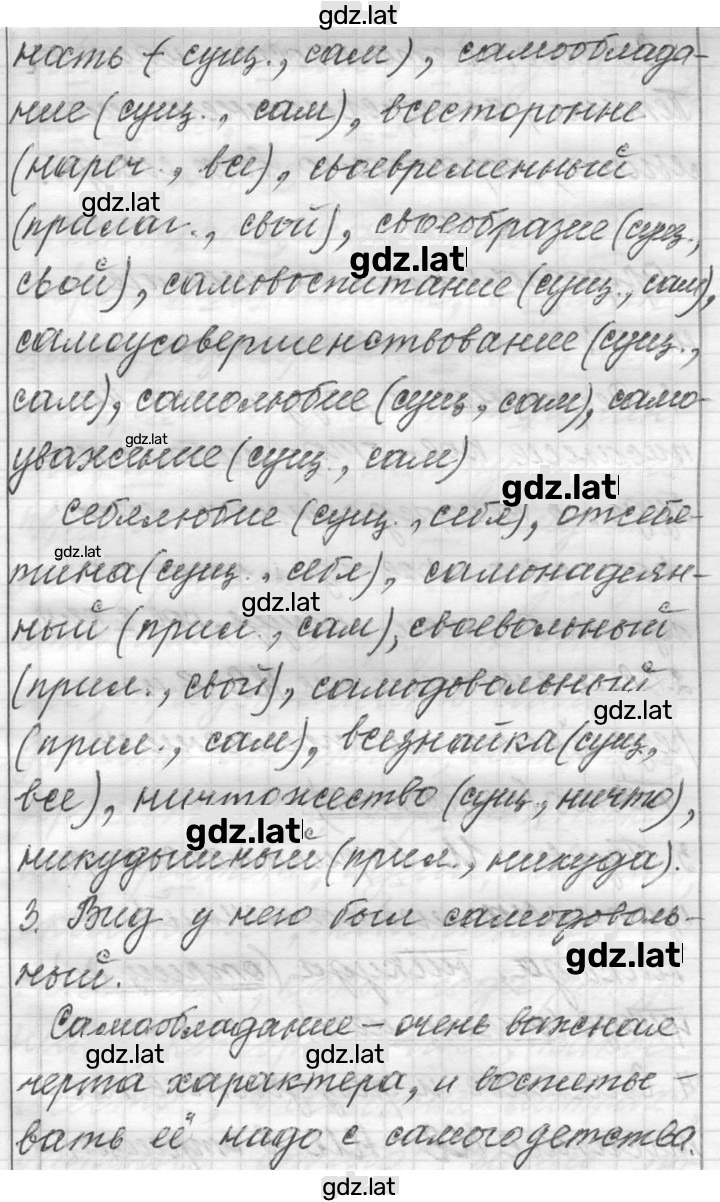 gdz.lat
ность (сущ., сам), самооблада-
ние (сущ., сам), всесторонне
(нареч., все), своевременный
gdz.lat
(прилаг., свой), своеобразие (сущ.,
gdz.lat
свой), самовоспитание (сущ., сам),
самоусовершенствование (сущ.,
сам), самолюбие (сущ., сам), само-
gdz.lat
уважение (сущ., сам)
gdz.lat
себялюбие (сущ., себя), отсебя-
gdz.lat
тина (сущ., себя), самонадеян-
gdz.lat
ный (прил., сам), своевольный
(прил., свой), самодовольный
gdz.lat
(прил., сам), всезнайка (сущ,
все), ничтожество (сущ., ничто),
gdz.lat
никудышный (прил., никуда).
3. Вид у него был самодоволь-
gdz.lat
ный.
Самообладание – очень важная
gdz.lat gdz.lat
черта характера, и воспиты-
вать её надо с самого детства.
gdz.lat